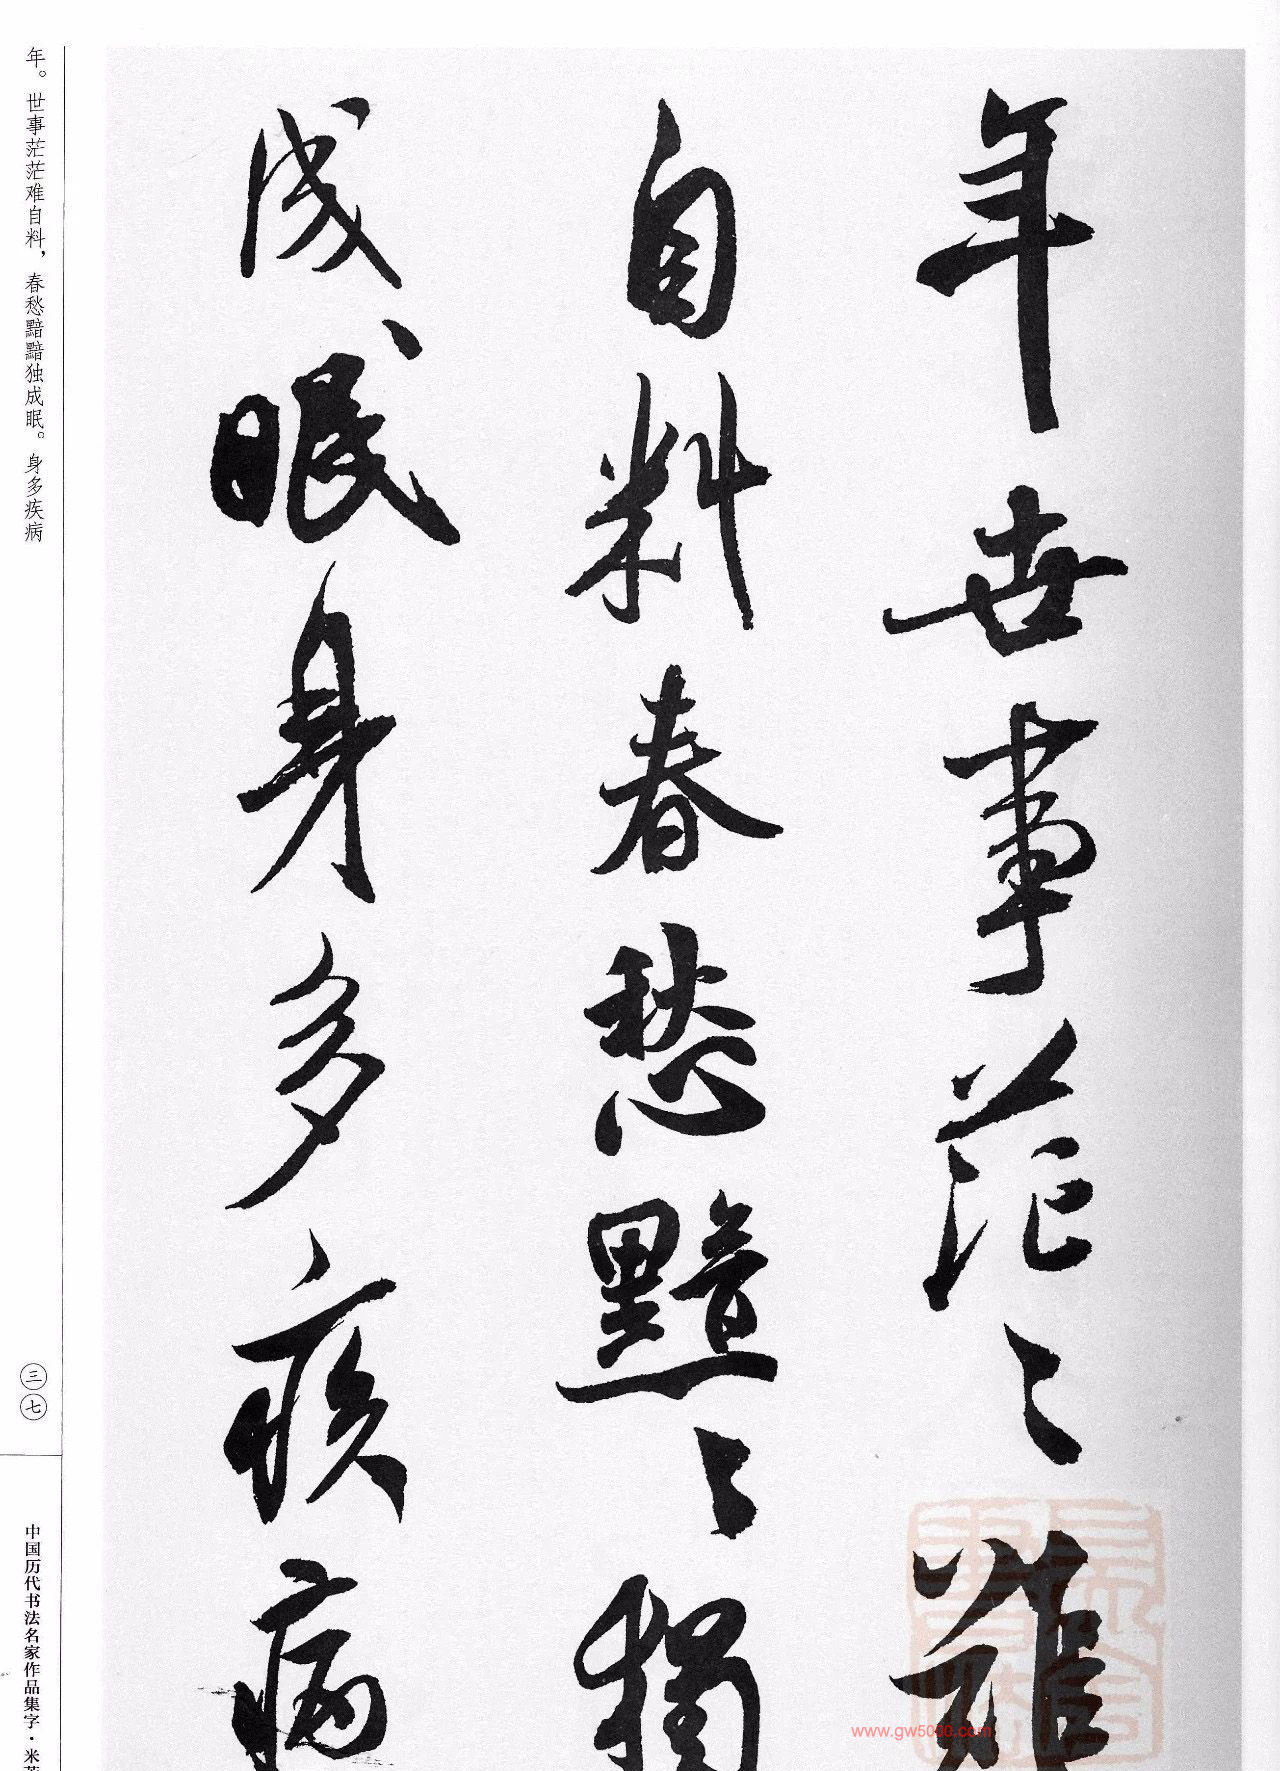 年世事茫〻難
自料春愁黯〻獨
成眠身多疾病
年。世事茫茫难自料，春愁黯黯独成眠。身多疾病
三七
中国历代书法名家作品集字·米芾
www.gw5000.com